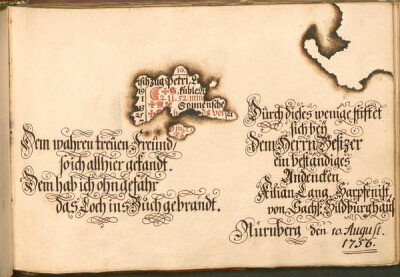 isch zug Petri, L
Sonnensche
Dem wahren treuen Freünd,
so ich allhier gekandt.
Dem hab ich ohngefähr
das Loch ins Buch gebrandt.
Durch dieses wenige stifftet
sich bey
Dem Herrn Besizer
ein beständiges
Andencken
Kilian Lang,
von Sachß. Hildburghauß
Nürnberg den 10. August.
1756.